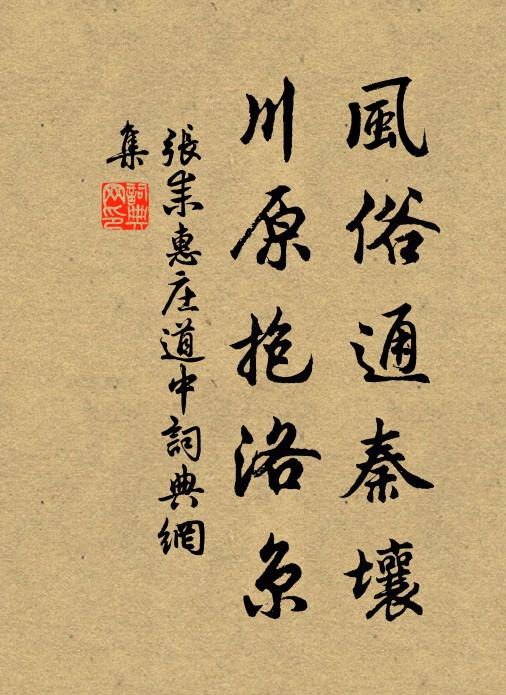 風俗通秦壤
川原抱洛京
張耒惠庄道中詞典網
集
詞典網印